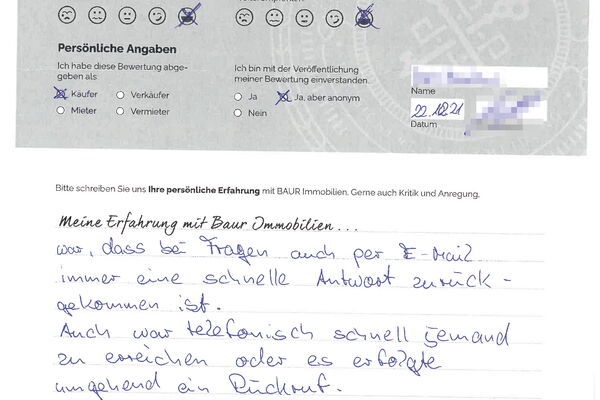 Persönliche Angaben
Ich habe diese Bewertung abge-
geben als
Käufer
Verkäufer
Mieter
Vermieter
Ich bin mit der Veröffentlichung
meiner Bewertung einverstanden.
Ja
Ja, aber anonym
Nein
Name
22.12.21
Datum
Bitte schreiben Sie uns Ihre persönliche Erfahrung mit BAUR Immobilien. Gerne auch Kritik und Anregung.
Meine Erfahrung mit Baur Immobilien...
war, dass bei Fragen auch per E-Mail
immer eine schnelle Antwort zurück-
gekommen ist.
Auch war telefonisch schnell jemand
zu erreichen oder es erfolgte
umgehend ein Rückruf.